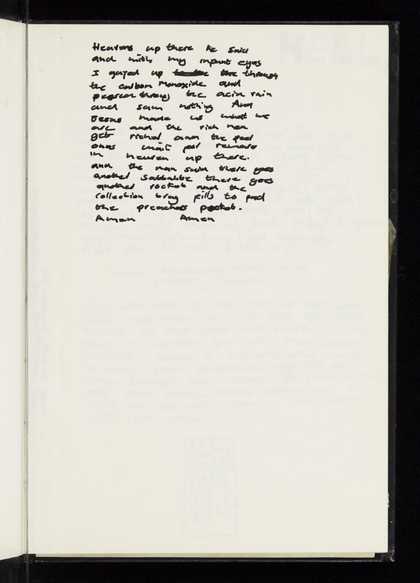 Heavens up there he said
and with my infant eyes
I gazed up the through
the carbon monoxide and
the acid rain
and saw nothing And
Jesus made us what we
are and the rich man
get richer and the poor
ones wait for reward
in heaven up there.
and the man said there goes
another satellite there goes
another rocket and the
collection tray fills to
the preachers pocket.
Amen Amen